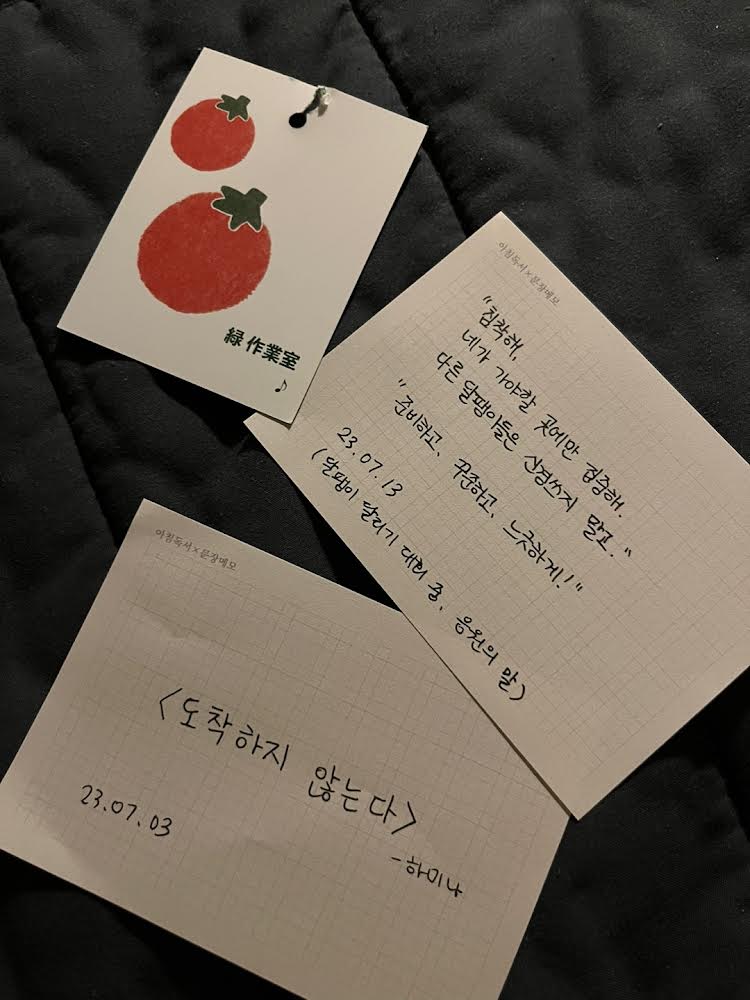 緑作業室
♪
아침독서×문장메모
"침착해,
네가 가야할 곳에만 집중해.
다른 달팽이들은 신경쓰지 말고."
"준비하고, 꾸준하고, 느긋하게!"
23.07.13
(달팽이 달리기 대회 중, 응원의 말)
아침독서×문장메모
<도착하지 않는다>
-하미나
23.07.03